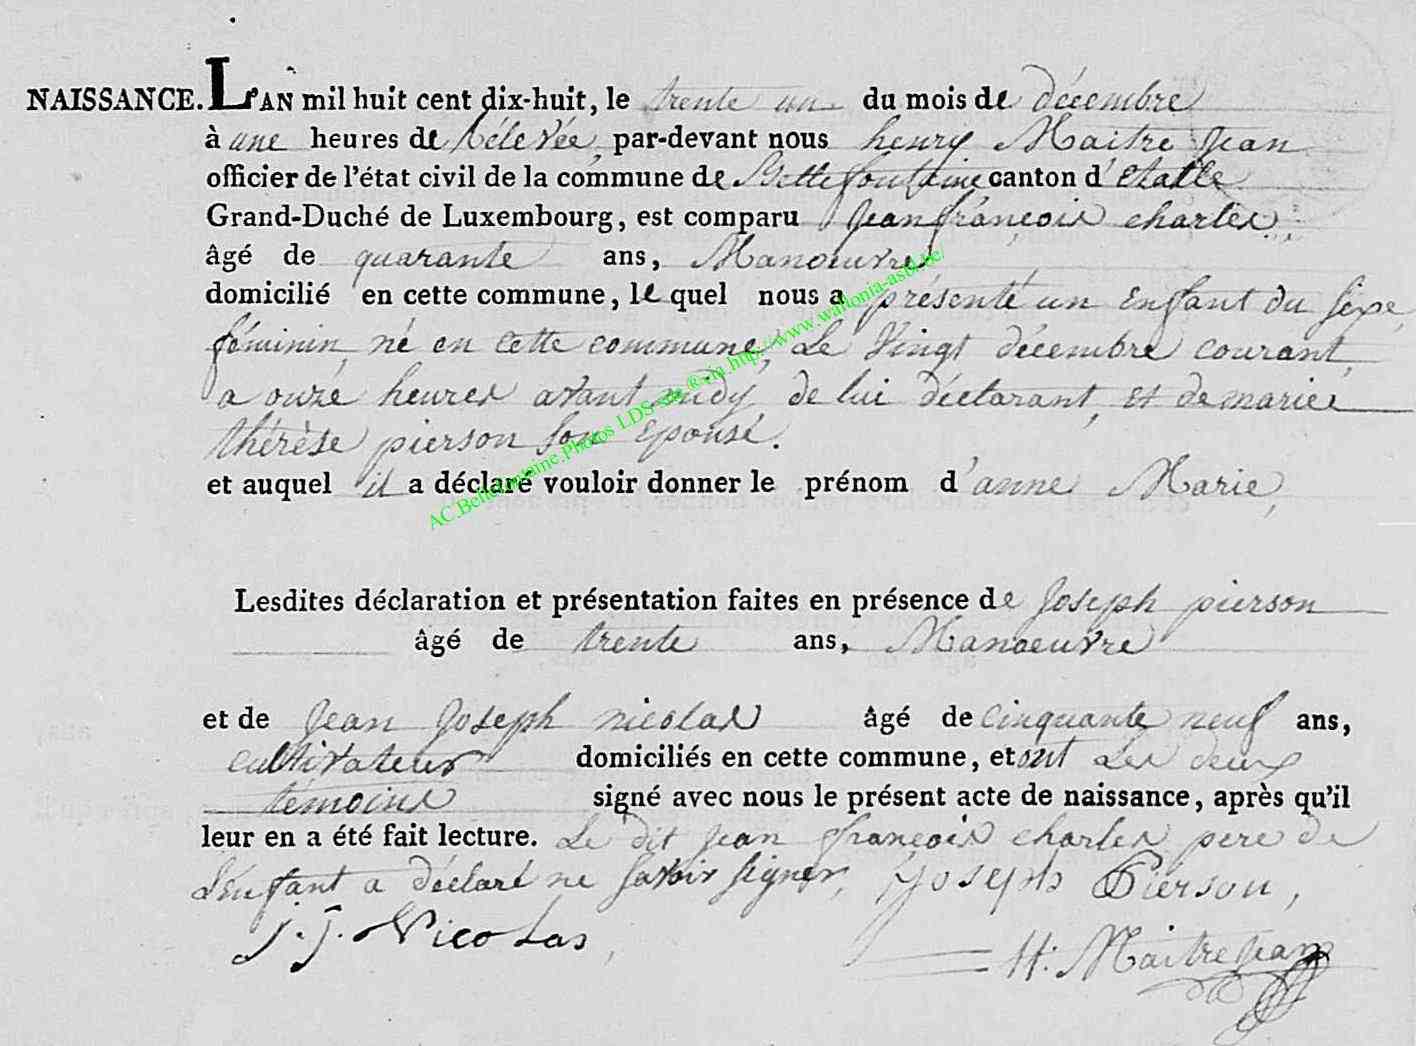 NAISSANCE. L'AN mil huit cent dix-huit, le trente un du mois de décembre
à une heures de rélevée, par-devant nous henry Maitre Jean
officier de l'état civil de la commune de Bellefontaine canton d'etalle
Grand-Duché de Luxembourg, est comparu Jean françois charles,
âgé de quarante ans, Manoeuvre
domicilié en cette commune, le quel nous a présenté un enfant du sexe
féminin né en cette commune, Le Vingt décembre courant,
a onze heures avant midy, de lui déclarant, et de marie
thérèse pierson son epouse.
et auquel il a déclaré vouloir donner le prénom d'anne Marie,
Lesdites déclaration et présentation faites en présence de Joseph pierson
âgé de trente ans, Manoeuvre
et de Jean Joseph nicolas âgé de cinquante neuf ans,
cultivateur domiciliés en cette commune, et ont Les deux
témoins signé avec nous le présent acte de naissance, après qu'il
leur en a été fait lecture. Le dit Jean françois charles pere de
L'enfant a déclaré ne savoir signer, Joseph Pierson,
J. J. Nicolas,
H. Maitrejean
AC.Bellefontaine.Photos LDS via http://www.wallonia-asbl.be/